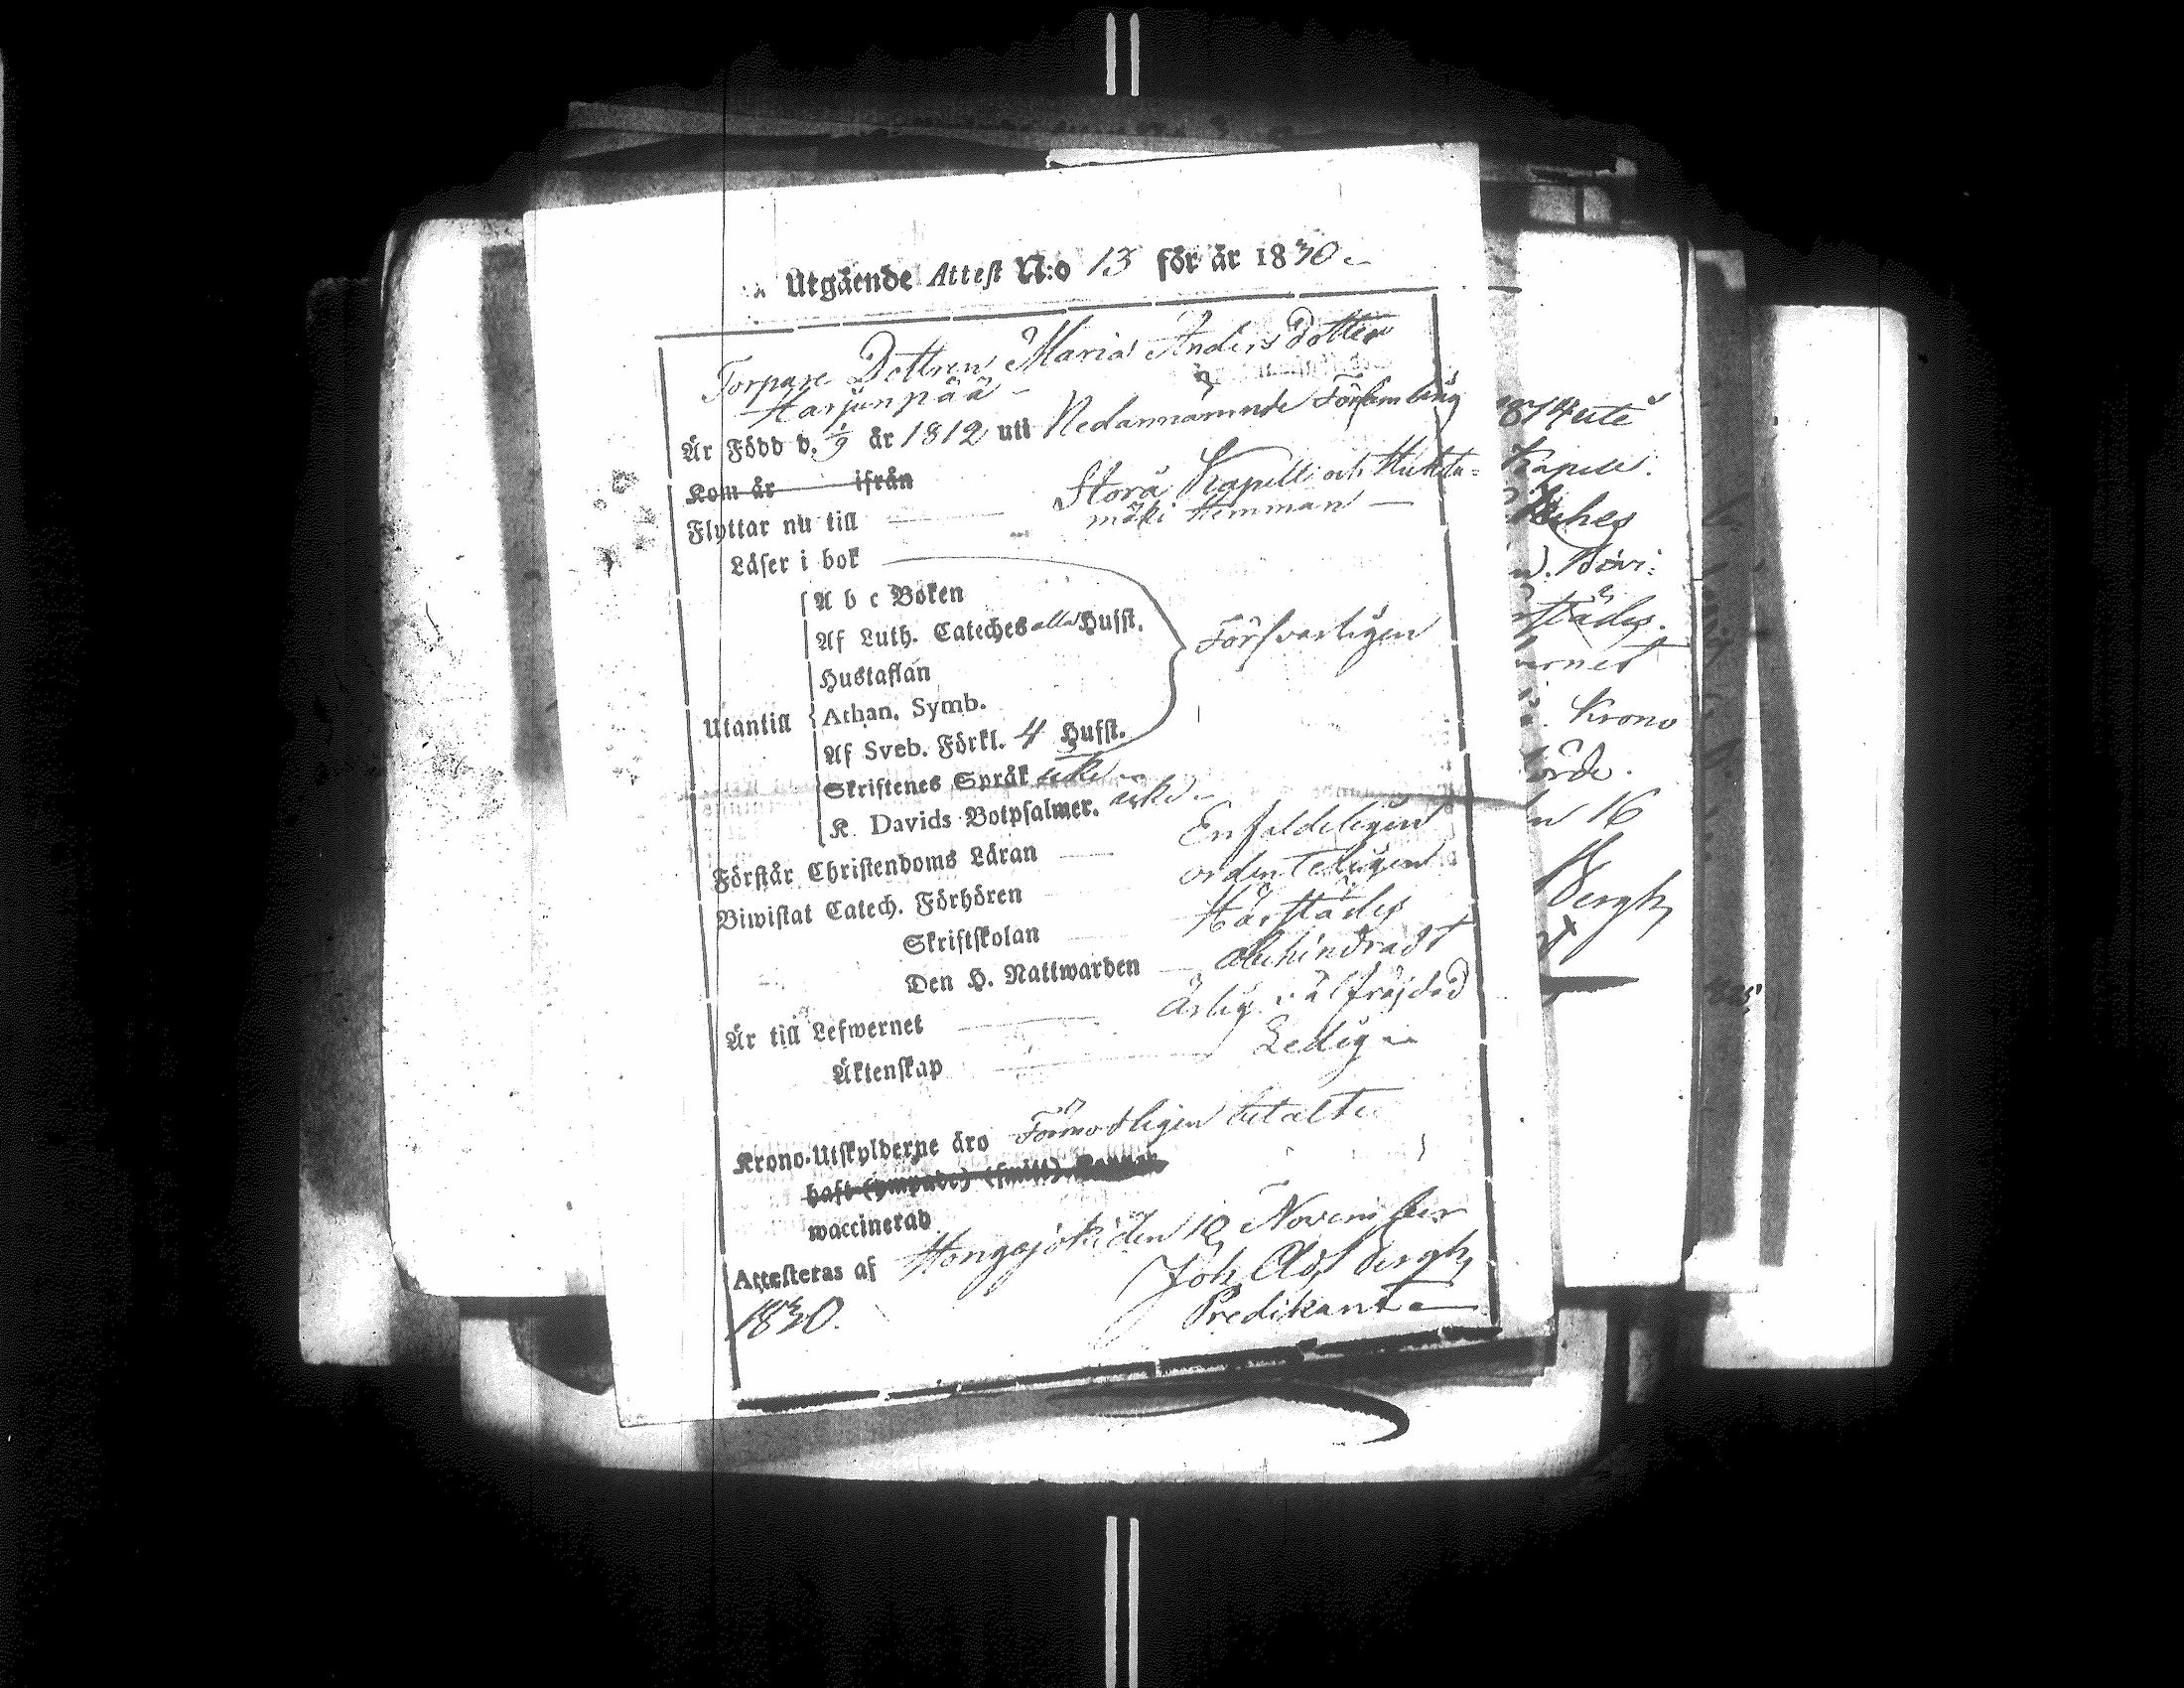 Utgående Attest N:o 13 för år 1830
Torpare Dottren Maria Anders dotter
Harjunpää
Är Född d. 1/9 år 1812 uti Nedannämnde Församling
Kom år ifrån
Flyttar nu till Stora Kapell och
mäki Hemman
Läser i bok
A b c Boken
Af Luth. Cateches alla Hufst.
Försvarligen
Hustaflan
Utantill
Athan. Symb.
Af Sveb. Förkl. 4 Hufst.
Skriftenes Språk icke
K. Davids Botpsalmer. icke
Förstår Christendoms Läran Enfaldeligen
Biwistat Catech. Förhören ordenteligen
Skriftskolan Härstädes
Den H. Nattwarden Ohindradt
Är till Lefwernet Ärlig väl fräjdad
Äktenskap Ledig
Krono-Utskylderne äro Förmodligen betalte
haft
waccinerad
Attesteras af Hongojoki den 12 November
1830. Joh. Ad. Bergh
Predikant
Kapell.
städes.
Krono
16
Bergh